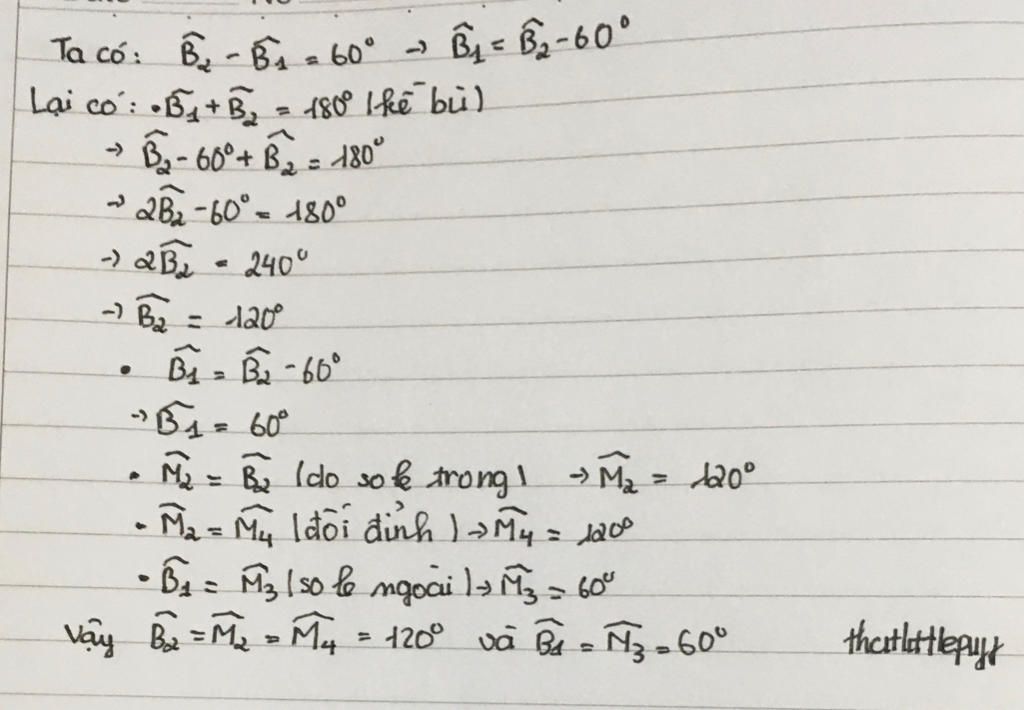 Ta có: B̂₂ - B̂₁ = 60° → B̂₁ = B̂₂ - 60°
Lại có: • B̂₁ + B̂₂ = 180° (kề bù)
→ B̂₂ - 60° + B̂₂ = 180°
→ 2B̂₂ - 60° = 180°
→ 2B̂₂ = 240°
→ B̂₂ = 120°
• B̂₁ = B̂₂ - 60°
→ B̂₁ = 60°
• M̂₂ = B̂₂ (do so le trong) → M̂₂ = 120°
• M̂₂ = M̂₄ (đối đỉnh) → M̂₄ = 120°
• B̂₁ = M̂₃ (so le ngoài) → M̂₃ = 60°
Vậy B̂₂ = M̂₂ = M̂₄ = 120° và B̂₁ = M̂₃ = 60°